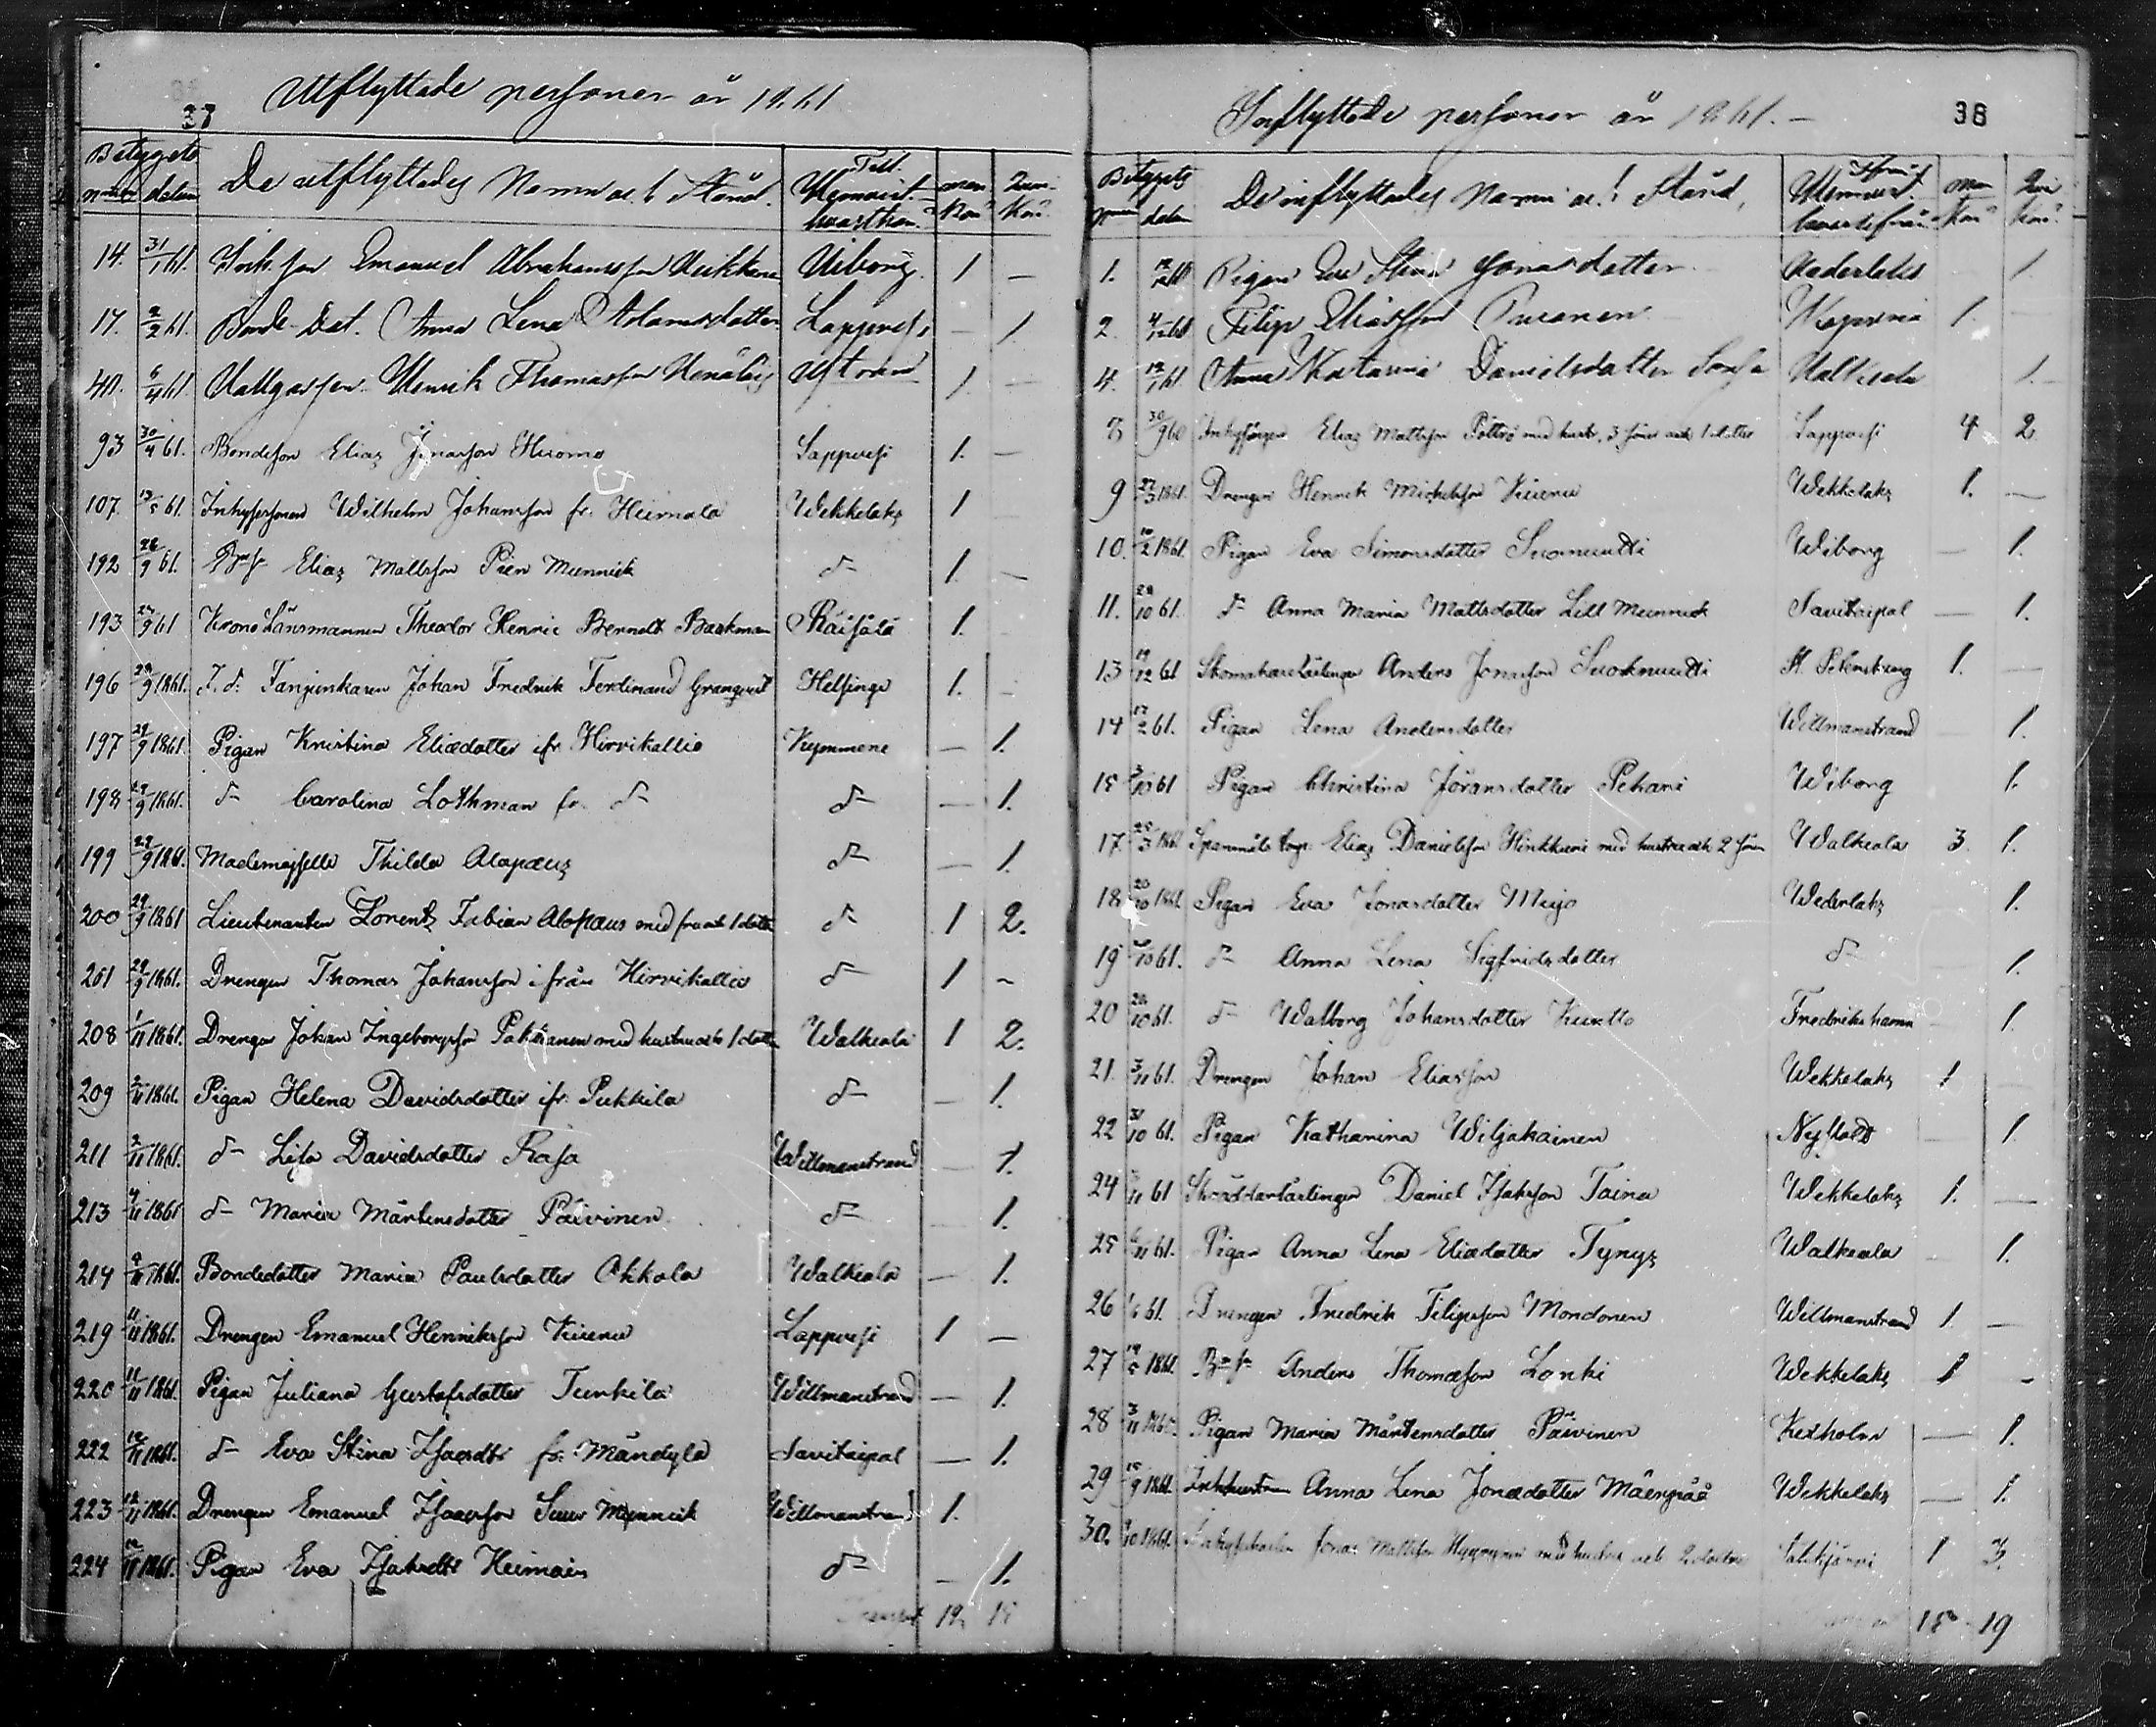 37
Utflyttade personer år 1861
Betygets De utflyttades Namn och Stånd. Till
numer datum Hemort hvarthän. man Kön Quin Kön
14. 31/1 61. Emanuel Abrahamsson Wiborg. 1 —
17. 2/2 61. Bonde Dot. Anna Lena Adamsdotter Lappvesi — 1.
6/4 61. Henrik Thomasson 1. —
93 30/4 61. Bondeson Elias Jonasson Huomo Lappvesi 1. —
107. 61. Inhysesonen Wilhelm Johansson fr. Heimala Wekkelaks 1
192 28/9 61. Elias Mattsson Pien Munnick d:o 1. —
193 9 61 Krono Länsmannen Theodor Henric Berndt Backman Räisälä 1.
196 29/9 1861. T. d. Fanjunkaren Johan Fredrik Ferdinand Granqvist Helsinge 1.
197 29/9 1861. Pigan Kristina Eliædotter ifr. Hirvikallio Kymmene — 1.
198 29/9 1861. d:o Carolina Lothman fr. d:o d:o — 1.
199 29/9 1861. Mademoiselle Thilda Alopæus d:o — 1.
200 29/9 1861 Lieutenanten Lorentz Fabian Alopæus med fru och 1 dotter d:o 1 2.
201 29/9 1861. Drengen Thomas Johansson ifrån Hirvikallio d:o 1 —
208 1/11 1861. Drengen Johan Ingeborgsson Pakkanen med hustru och 1 dotter Walkeala 1 2.
209 2/11 1861. Pigan Helena Davidsdotter ifr. Pukkila d:o — 1.
211 2/11 1861. d:o Lisa Davidsdotter Rasa Willmanstrand — 1.
213 4/11 1861 d:o Maria Mårtensdotter Päivinen d:o 1.
214 1861. Bondedotter Maria Paulsdotter Okkola Walkeala — 1.
219 11/11 1861. Drengen Emanuel Henriksson Kiuru Lappvesi 1 —
220 11/11 1861. Pigan Juliana Gustafsdotter Tuukila Willmanstrand — 1.
222 12/11 1861. d:o Eva Stina Isacsdtr fr. Mändylä Savitaipal — 1.
223 12/11 1861. Drengen Emanuel Isacsson Suur Munnick Willmanstrand 1.
224 12/11 1861. Pigan Eva Isaksdtr Heimais d:o — 1.
Transport 12 15
38
Inflyttade personer år 1861. —
Betygets De inflyttades Namn och Stånd, ifrån
numer datum Hemort hvarifrån man Kön Quin Kön
1. Pigan Eva Stina Jonasdotter Wederlaks 1.
2. Filip Eliasson 1.
4. Anna Katarina Danielsdotter Walkeala 1.
8 30/9 60 Elias Mattsson med hustr, 3 söner och 1 dotter Lappvesi 4 2
9 22/3 1861. Drengen Henrik Mickelsson Kiuru Wekkelaks 1. —
10. 10/2 1861. Pigan Eva Simonsdotter Suomuudti Wiborg — 1.
11. 28/10 61. d:o Anna Maria Mattsdotter Lill Munnick Savitaipal — 1.
13 19/12 61 Skomakarelärlingen Anders Jonasson St. Petersburg 1. —
14 17/2 61. Pigan Lena Andersdotter Willmanstrand 1.
15 3/10 61 Pigan Christina Jöransdotter Pekari Wiborg 1.
17 25/3 1861 Elias Danielsson med hustru och 2 söner Walkeala 3. 1.
18 20/10 1861. Pigan Eva Jonasdotter Wederlaks 1.
19 10 61. d:o Anna Lena Sigfridsdotter d:o 1.
20 28/10 61. d:o Walborg Johansdotter Kurtto Fredrikshamn 1.
21. 3/11 61. Drengen Johan Eliasson Wekkelaks 1
22 31/10 61. Pigan Katharina Wiljakainen Nyslott 1.
24 11 61 Skräddarlärlingen Daniel Isaksson Taina Wekkelaks 1. —
25 6/11 61. Pigan Anna Lena Eliædotter Tynys Walkeala 1.
26 61. Drengen Fredrik Filipsson Mondonen Willmanstrand 1. —
27 19/5 1861. Anders Thomasson Lonki Wekkelaks 1 —
28 3/11 Pigan Maria Mårtensdotter Päivinen Kexholm — 1.
29 15/9 1861. Anna Lena Jonædotter Wekkelaks — 1.
30. Jonas Mattsson med hustru och 2 döttrar 1 3.
15 19